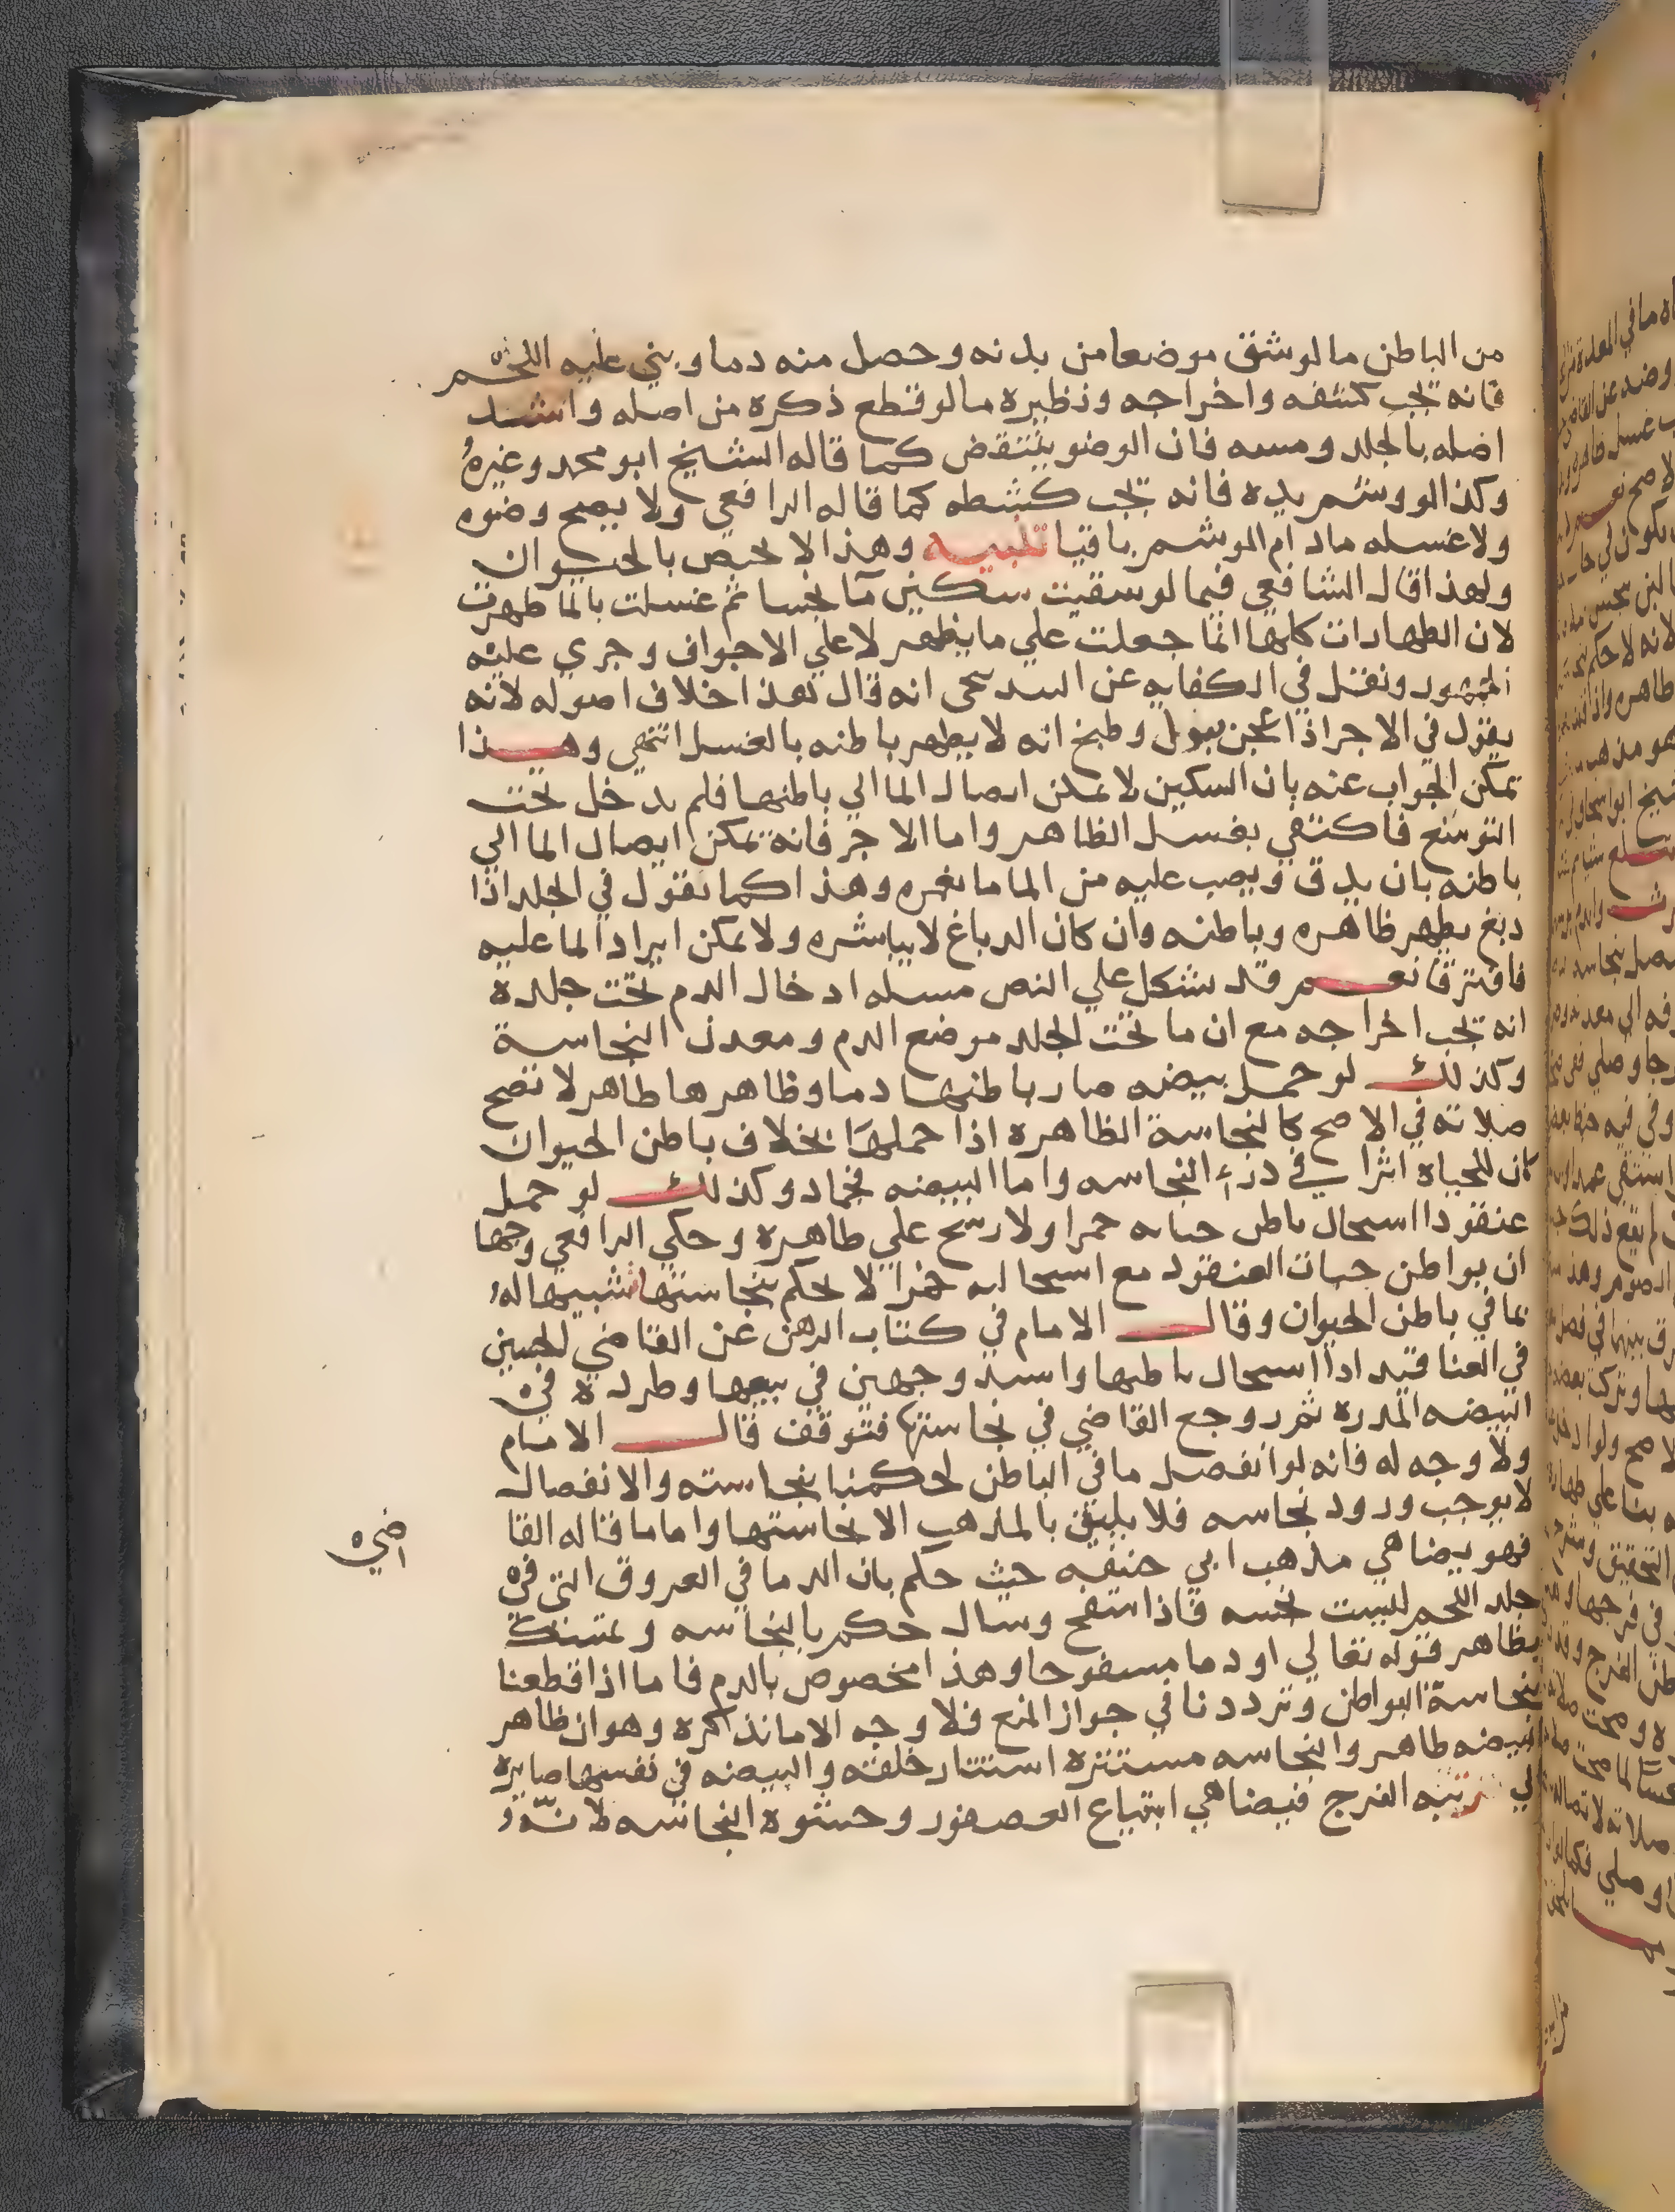 من الباطن ما لو شق موضعا من بدنه وحصل منه دما وبني عليه اللحم
فانه يجب كشفه واخراجه ونظيره ما لو قطع ذكره من اصله وانسد
اصله بالجلد ومسه فان الوضو ينتقض كما قاله الشيخ ابو محمد وغيره
وكذا لو وشم يده فانه يجب كشطه كما قاله الرافعي ولا يصح وضوه
ولا غسله ما دام الوشم باقيا تنبيه وهذا لا يختص بالحيوان
ولهذا قال الشافعي فيما لو سقيت سكين مآ نجسا ثم غسلت بالما طهرت
لان الطهارات كلها انما جعلت علي ما يظهر لا علي الاجواف وجري عليه
الجمهور ونقل في الكفايه عن البندنيجي انه قال هذا خلاف اصوله لانه
يقول في الاجر اذا عجن ببول وطبخ انه لا يطهر باطنه بالغسل انتهي وهذا
يمكن الجواب عنه بان السكين لا يمكن ايصال الما الي باطنها فلم يدخل تحت
التوسع فاكتفي بغسل الظاهر واما الاجر فانه يمكن ايصال الما الي
باطنه بان يدق ويصب عليه من الما ما يغمره وهذا كما نقول في الجلد اذا
دبغ يطهر ظاهره وباطنه وان كان الدباغ لا يباشره ولا يمكن ايراد الما عليه
فافترقا نعم قد يشكل علي النص مسله ادخال الدم تحت جلده
انه يجب اخراجه مع ان ما تحت الجلد موضع الدم ومعدن النجاسة
وكذلك لو حمل بيضه صار باطنها دما وظاهرها طاهر لا تصح
صلاته في الاصح كالنجاسة الظاهره اذا حملها بخلاف باطن الحيوان
كان للحياة اثرا في درء النجاسه واما البيضه فجماد وكذلك لو حمل
عنقودا استحال باطن حباته خمرا ولا رشح علي ظاهره وحكي الرافعي وجها
ان بواطن حبات العنقود مع استحالته خمرا لا يحكم بنجاستها تشبيها له
بما في باطن الحيوان وقال الامام في كتاب الرهن عن القاضي الحسين
في العناقيد اذا استحال باطنها واشتد وجهين في بيعها وطرده في
البيضه المذره ثم روجع القاضي في نجاستها فتوقف قال الامام
ولا وجه له فانه لو انفصل ما في الباطن لحكمنا بنجاسته والانفصال
لا يوجب ورود نجاسه فلا يليق بالمذهب الا نجاستها واما ما قاله القا
ضي
فهو يضاهي مذهب ابي حنيفه حيث حكم بان الدما في العروق التي في
جلد اللحم ليست نجسه فاذا استفح وسال حكم بالنجاسه وتمسك
بظاهر قوله تعالي او دما مسفوحا وهذا مخصوص بالدم فاما اذا قطعنا
بنجاسة البواطن وترددنا في جواز المنع فلا وجه الا ما نذكره وهو ان ظاهر
البيضه طاهر والنجاسه مستتره استتار خلقته والبيضه في نفسها صايره
الي رتبه الفرج فيضاهي ابتياع العصفور وحشوه النجاسه لانه